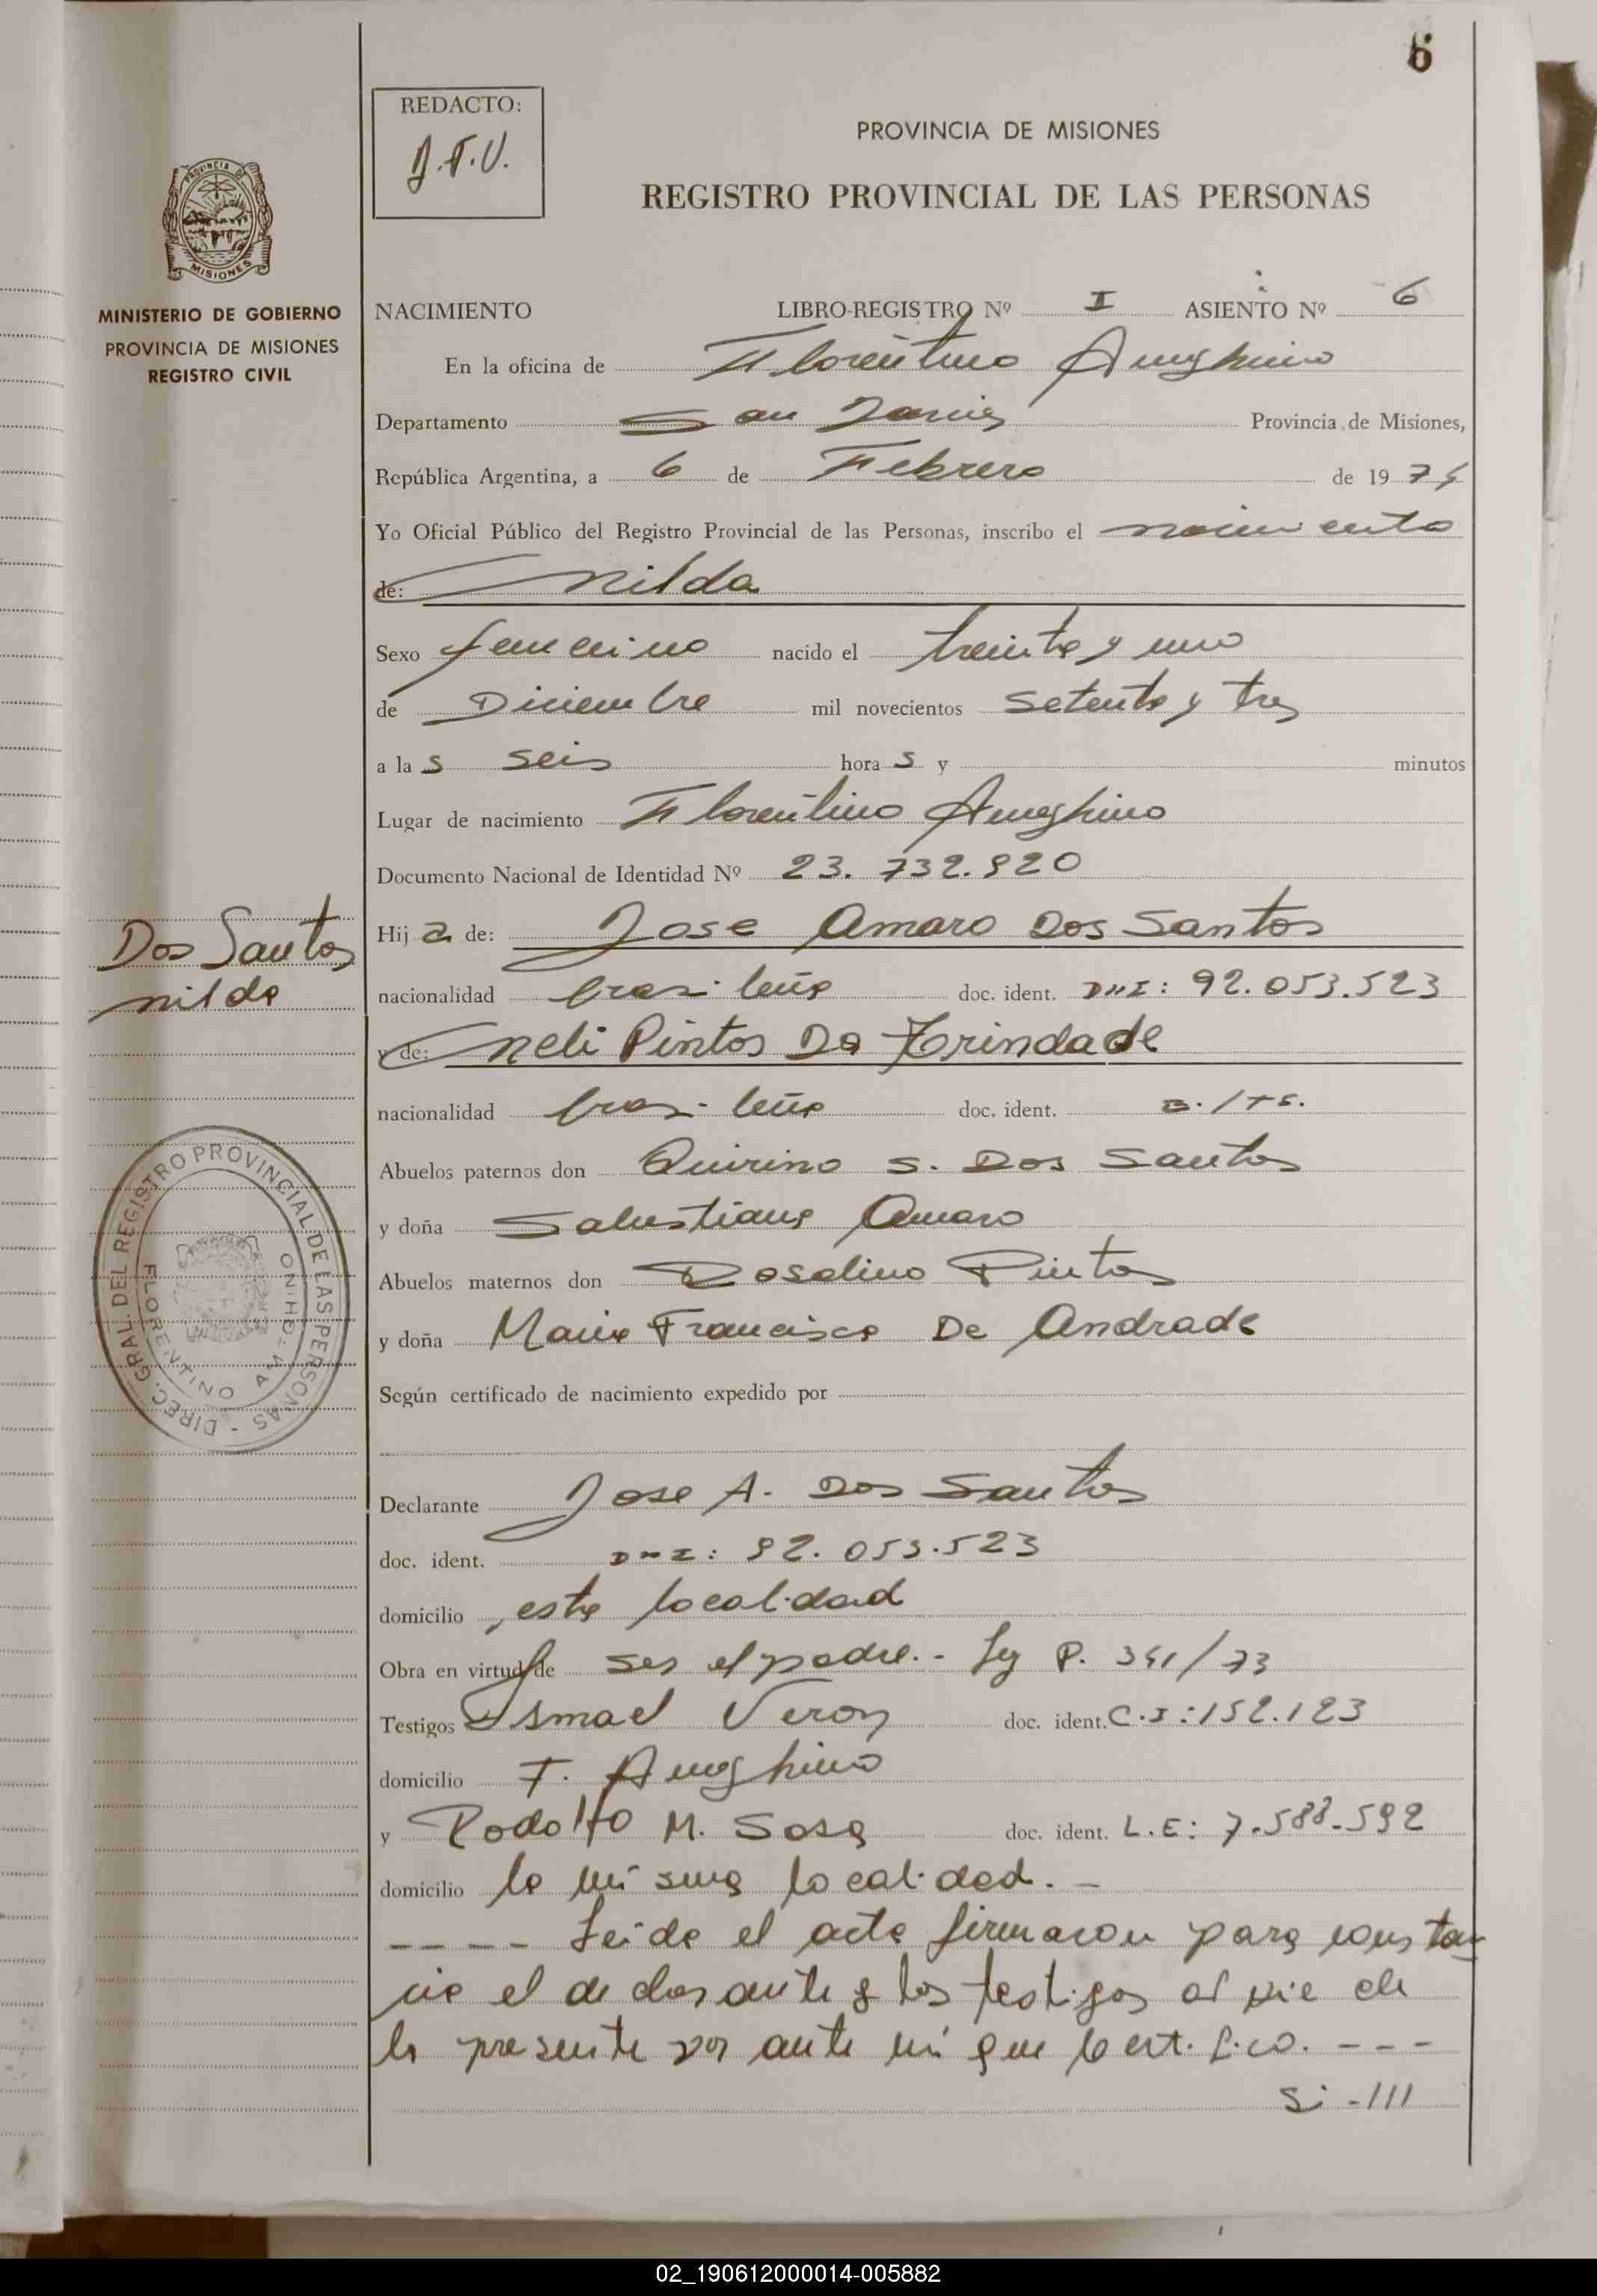 6
REDACTO:
J.F.V.
PROVINCIA DE MISIONES
REGISTRO PROVINCIAL DE LAS PERSONAS
PROVINCIA DE
MISIONES
MINISTERIO DE GOBIERNO
PROVINCIA DE MISIONES
REGISTRO CIVIL
NACIMIENTO LIBRO-REGISTRO Nº I ASIENTO Nº 6
En la oficina de Florentino Ameghino
Departamento San Javier Provincia de Misiones,
República Argentina, a 6 de Febrero de 1974
Yo Oficial Público del Registro Provincial de las Personas, inscribo el nacimiento
de: Nilda
Sexo femenino nacido el treinta y uno
de Diciembre mil novecientos setenta y tres
a las seis horas y minutos
Lugar de nacimiento Florentino Ameghino
Documento Nacional de Identidad Nº 23.732.920
Hija de: Jose Amaro Dos Santos
Dos Santos
Nilda
nacionalidad brasileña doc. ident. DNI: 92.053.523
y de: Neli Pintos Da Trindade
nacionalidad brasileña doc. ident.
Abuelos paternos don Quirino S. Dos Santos
y doña Salustiana Amaro
Abuelos maternos don Rosalino Pintos
y doña Maria Francisca De Andrade
DIREC. GRAL. DEL REGISTRO PROVINCIAL DE LAS PERSONAS -
FLORENTINO AMEGHINO
Según certificado de nacimiento expedido por
Declarante Jose A. Dos Santos
doc. ident. DNI: 92.053.523
domicilio esta localidad
Obra en virtud de ser el padre.- Ley P. 341/73
Testigos Ismael Veron doc. ident. C.I: 152.123
domicilio F. Ameghino
y Rodolfo M. Sosa doc. ident. L.E: 7.588.592
domicilio la misma localidad. -
---- Leida el acta firmaron para constan
cia el declarante y los testigos al pie de
la presente por ante mi que certifico. ---
Si -///
02_190612000014-005882